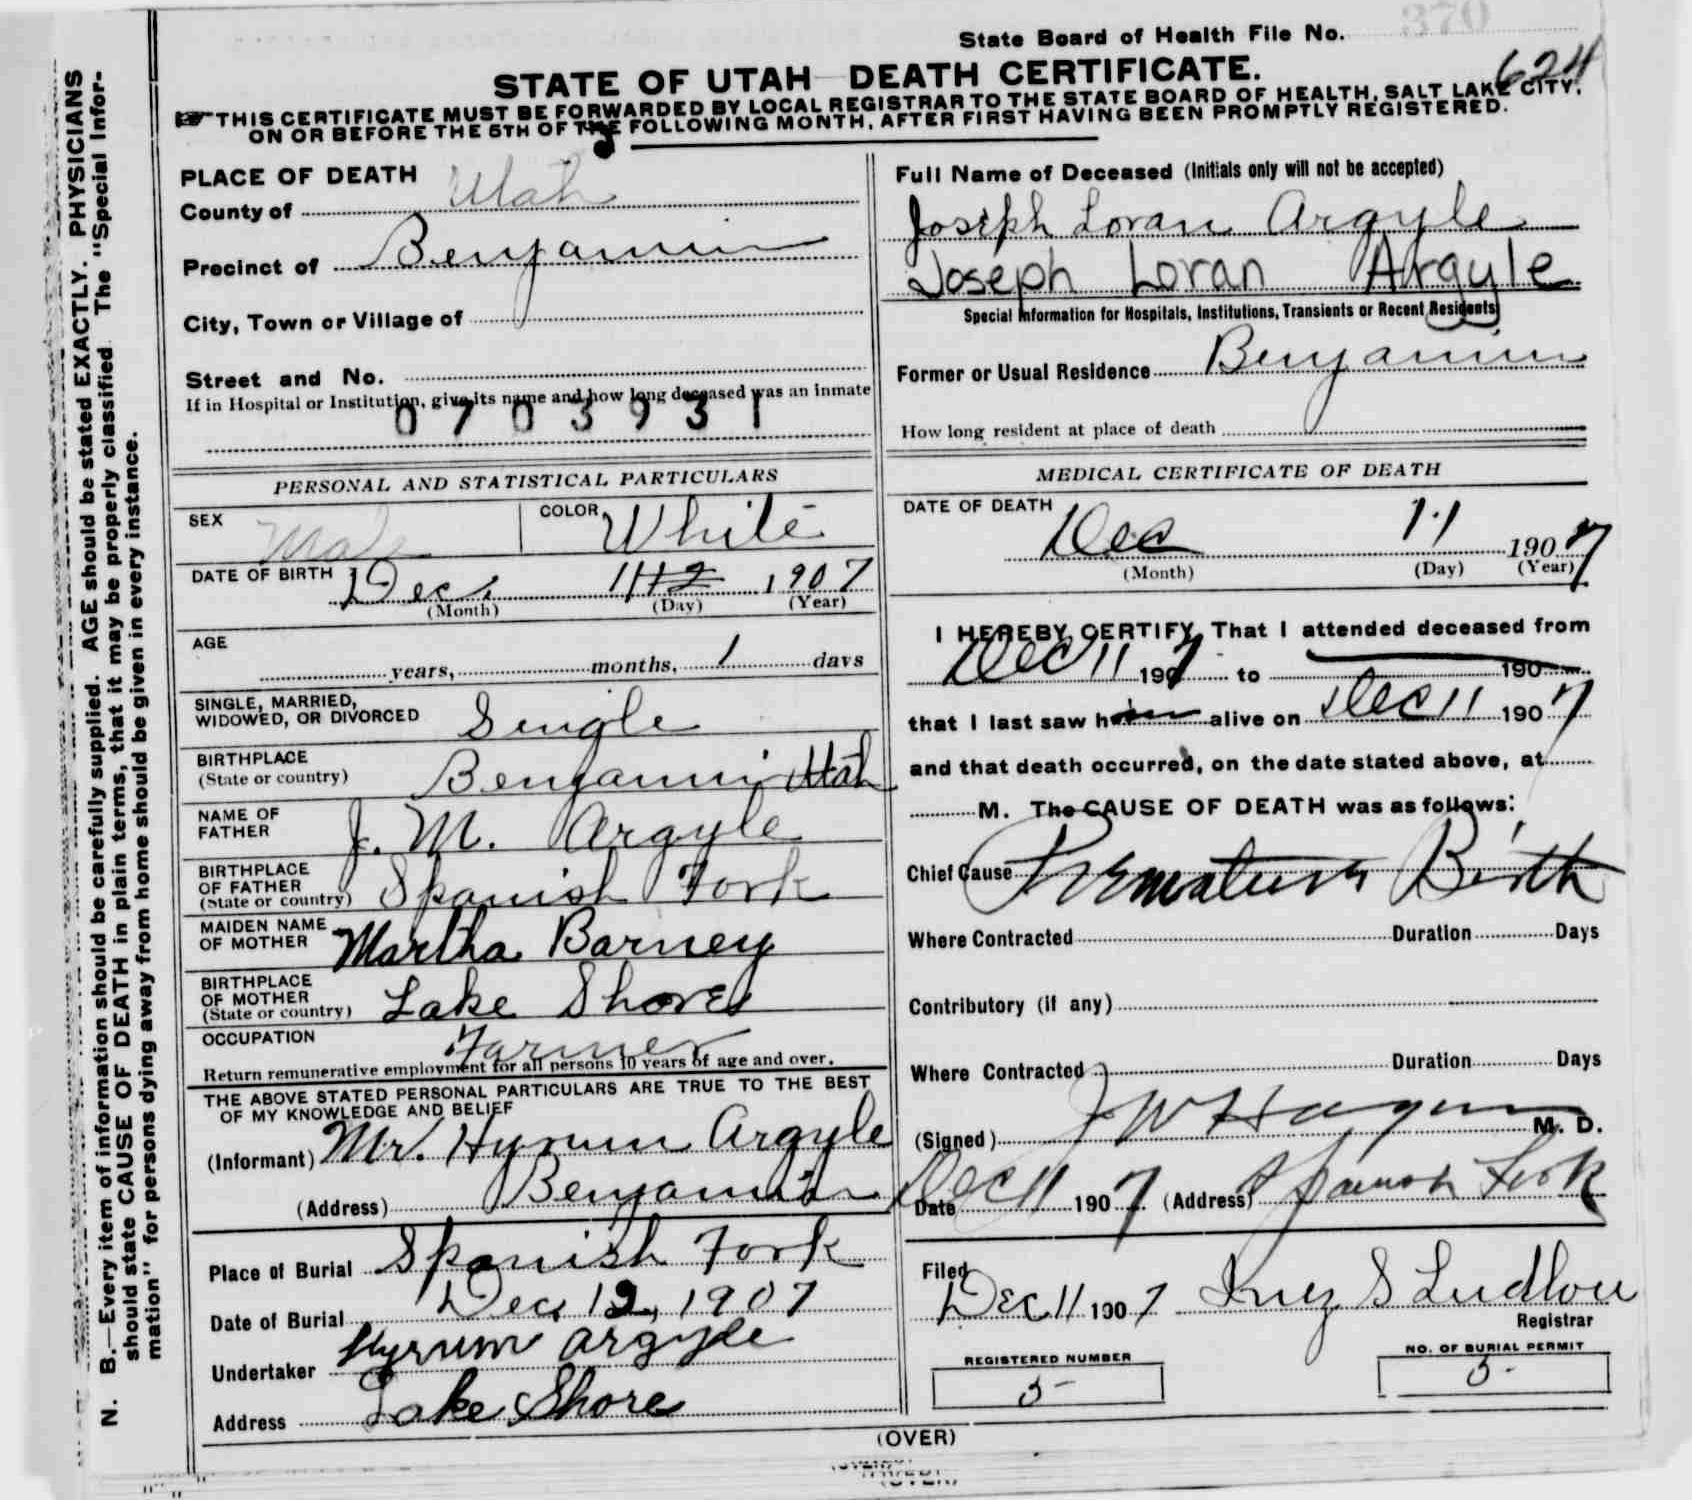 370
State Board of Health File No.
624
STATE OF UTAH DEATH CERTIFICATE.
THIS CERTIFICATE MUST BE FORWARDED BY LOCAL REGISTRAR TO THE STATE BOARD OF HEALTH, SALT LAKE CITY,
ON OR BEFORE THE 5TH OF THE FOLLOWING MONTH, AFTER FIRST HAVING BEEN PROMPTLY REGISTERED.
N. B.—Every item of information should be carefully supplied. AGE should be stated EXACTLY. PHYSICIANS
should state CAUSE OF DEATH in plain terms, that it may be properly classified The "Special Infor-
mation" for persons dying away from home should be given in every instance.
PLACE OF DEATH
County of Utah
Precinct of Benjamin
City, Town or Village of
Street and No.
If in Hospital or Institution, give its name and how long deceased was an inmate
0703931
PERSONAL AND STATISTICAL PARTICULARS
SEX Male COLOR White
DATE OF BIRTH Dec. 11 12 1907
(Month) (Day) (Year)
AGE
years, months, 1 days
SINGLE, MARRIED,
WIDOWED, OR DIVORCED Single
BIRTHPLACE
(State or country) Benjamin Utah
NAME OF
FATHER J. M. Argyle
BIRTHPLACE
OF FATHER
(State or country) Spanish Fork
MAIDEN NAME
OF MOTHER Martha Barney
BIRTHPLACE
OF MOTHER
(State or country) Lake Shore
OCCUPATION Farmer
Return remunerative employment for all persons 10 years of age and over.
THE ABOVE STATED PERSONAL PARTICULARS ARE TRUE TO THE BEST
OF MY KNOWLEDGE AND BELIEF
(Informant) Mr. Hyrum Argyle
(Address) Benjamin
Place of Burial Spanish Fork
Date of Burial Dec, 12, 1907
Undertaker Hyrum argyle
Address Lake Shore
Full Name of Deceased (Initials only will not be accepted)
Joseph Loran Argyle
Joseph Loran Argyle
Special Information for Hospitals, Institutions, Transients or Recent Residents
Former or Usual Residence Benjamin
How long resident at place of death
MEDICAL CERTIFICATE OF DEATH
DATE OF DEATH
Dec 11 1907
(Month) (Day) (Year)
I HEREBY CERTIFY, That I attended deceased from
Dec 11 1907 to 190
that I last saw him alive on Dec 11 1907
and that death occurred, on the date stated above, at
M. The CAUSE OF DEATH was as follows:
Chief Cause Premature Birth
Where Contracted Duration Days
Contributory (if any)
Where Contracted Duration Days
(Signed) J W Hagan M. D.
Date Dec 11 1907 (Address) Spanish Fork
Filed
Dec 11 1907 Inez S Ludlow
Registrar
REGISTERED NUMBER
5
NO. OF BURIAL PERMIT
5
(OVER)